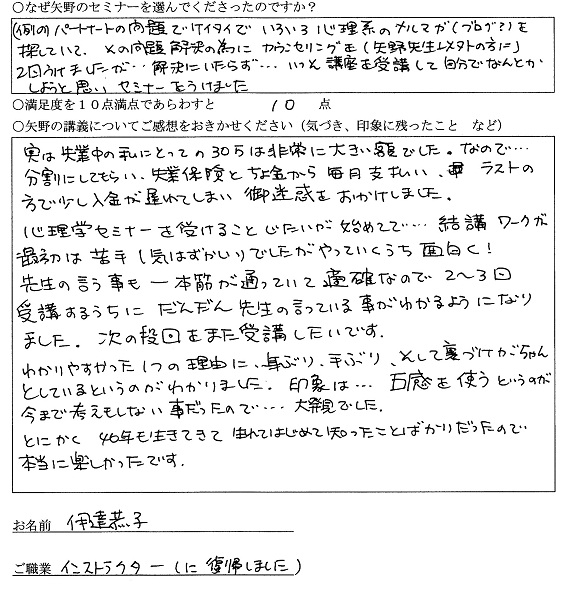 ○なぜ矢野のセミナーを選んでくださったのですか?
例のパートナートの問題でケイタイでいろいろ心理系のメルマガ(ブログ?)を
探していて、その問題解決の為にカウンセリングを(矢野先生以外の方に)
2回うけましたが…解決にいたらず…いっそ講座を受講して自分でなんとか
しようと思いセミナーをうけました
○満足度を10点満点であらわすと 10 点
○矢野の講義についてご感想をおきかせください(気づき、印象に残ったこと など)
実は失業中の私にとっての30万は非常に大きい額でした。なので…
分割にしてもらい、失業保険とちょ金から毎月支払い、ラストの
方で少し入金が遅れてしまい御迷惑をおかけしました。
心理学セミナーを受けることじたいが始めてで…結講ワークが
最初は苦手(気はずかしい)でしたがやっていくうち面白く!
先生の言う事も一本筋が通っていて適確なので2〜3回
受講するうちにだんだん先生の言っている事がわかるようになり
ました。次の段回をまた受講したいです。
わかりやすかった1つの理由に、身ぶり、手ぶり、そして裏づけがちゃん
としているというのがわかりました。印象は…五感を使うというのが
今まで考えもしない事だったので…大発見でした。
とにかく46年も生きてきて生れてはじめて知ったことばかりだったので
本当に楽しかったです.
お名前 伊達恭子
ご職業 インストラクター(に復帰しました)